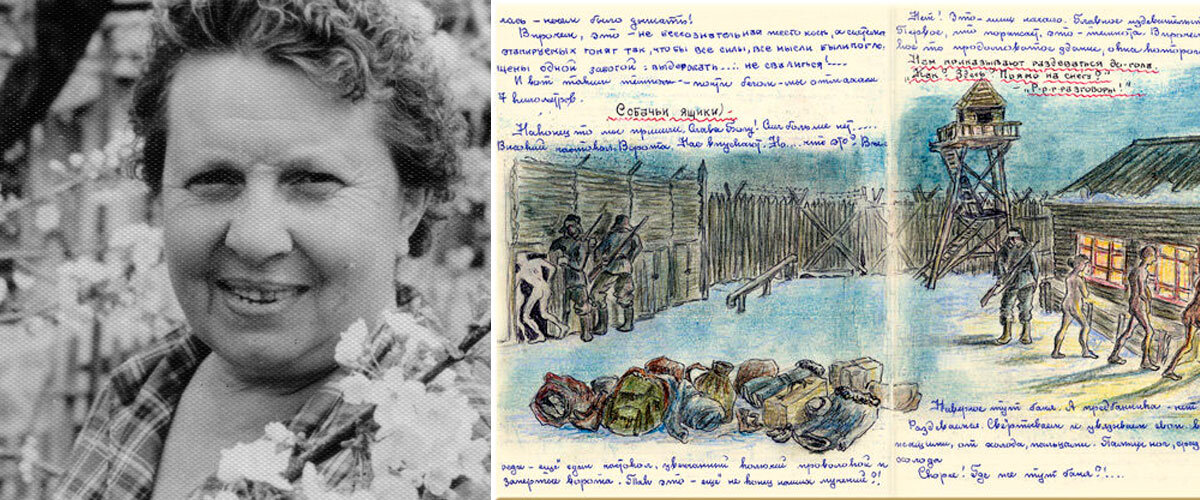 лась – нечем было дышать!
Впрочем, это – не бессознательная жестокость, а система
этапируемых гонят так, чтобы все силы, все мысли были погло-
щены одной заботой: выдержать... не свалиться!...
И вот таким темпом – почти бегом – мы отмахали
7 километров.
Собачьи ящики
Наконец то мы пришли. Слава Богу! Сил больше нет....
Высокий частокол. Ворота. Нас впускают. Но... что это?
ещё один частокол, увенчанный колючей проволокой и
запертые ворота. это – ещё не конец наших мучений?!
Нет! Это – лишь начало. Главное издевательств
Первое, что поражает, это – темнота. Впроче
вое то продолговатое здание, окна котор
Нам приказывают раздеваться до-гола.
„Как? Здесь? Прямо на снегу?"
– „Р-р-разговоры!"
Наверное тут баня. А предбанника – нет
Раздеваемся. Свёртываем и увязываем свои в
жащими, от холода, пальцами. Пальцы ног,
холода
Скорее! Где же тут баня?!....